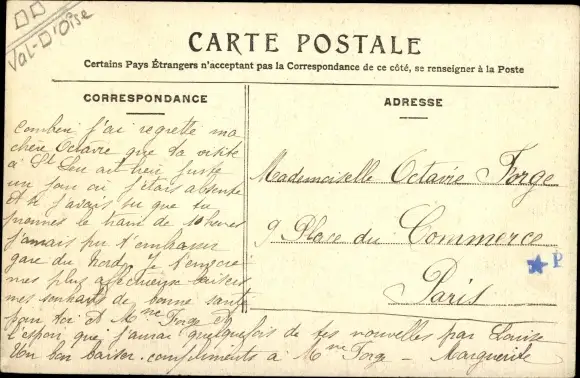 Val-D'Oise
CARTE POSTALE
Certains Pays Étrangers n'acceptant pas la Correspondance de ce côté, se renseigner à la Poste
CORRESPONDANCE
combien j'ai regretté ma
chère Octavie que ta visite
à St Leu ait lieu juste
un jour où j'étais absente
et si j'avais su que tu
prennes le train de 10 heures
j'aurais pu t'embrasser
gare du Nord. Je t'envoie
mes plus affectueux baisers
mes souhaits de bonne santé
pour toi et Mme Forge et
l'espoir que j'aurai quelquefois de tes nouvelles par Louise
Un bon baiser. compliments à Mme Forge - Marguerite
ADRESSE
Mademoiselle Octavie Forge
9 Place du Commerce
Paris
P